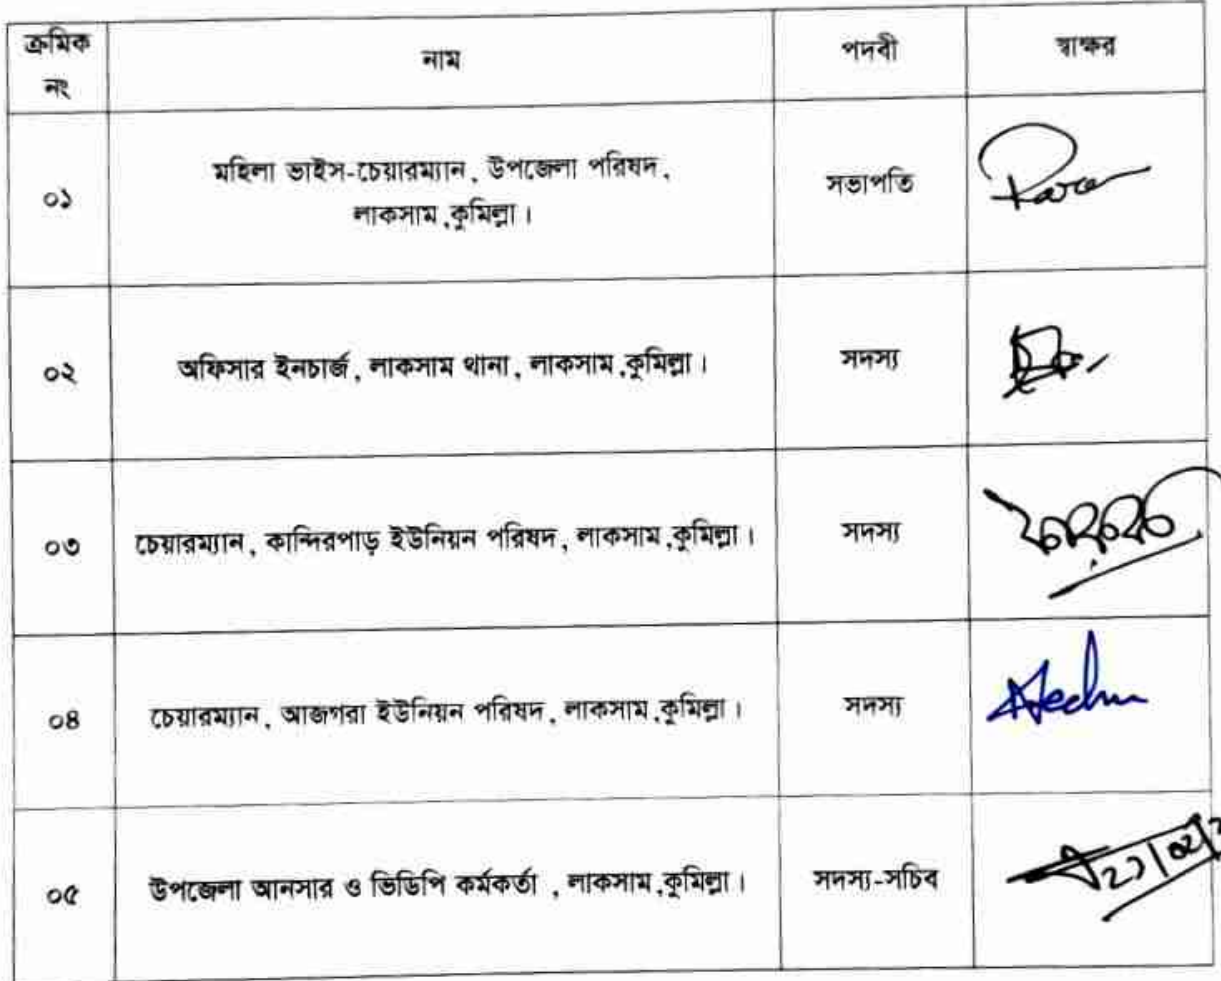 ক্রমিক নং নাম পদবী স্বাক্ষর
০১ মহিলা ভাইস-চেয়ারম্যান, উপজেলা পরিষদ, সভাপতি
লাকসাম,কুমিল্লা।
০২ অফিসার ইনচার্জ, লাকসাম থানা, লাকসাম,কুমিল্লা। সদস্য
০৩ চেয়ারম্যান, কান্দিরপাড় ইউনিয়ন পরিষদ, লাকসাম,কুমিল্লা। সদস্য
০৪ চেয়ারম্যান, আজগরা ইউনিয়ন পরিষদ, লাকসাম,কুমিল্লা। সদস্য
০৫ উপজেলা আনসার ও ভিডিপি কর্মকর্তা , লাকসাম,কুমিল্লা। সদস্য-সচিব